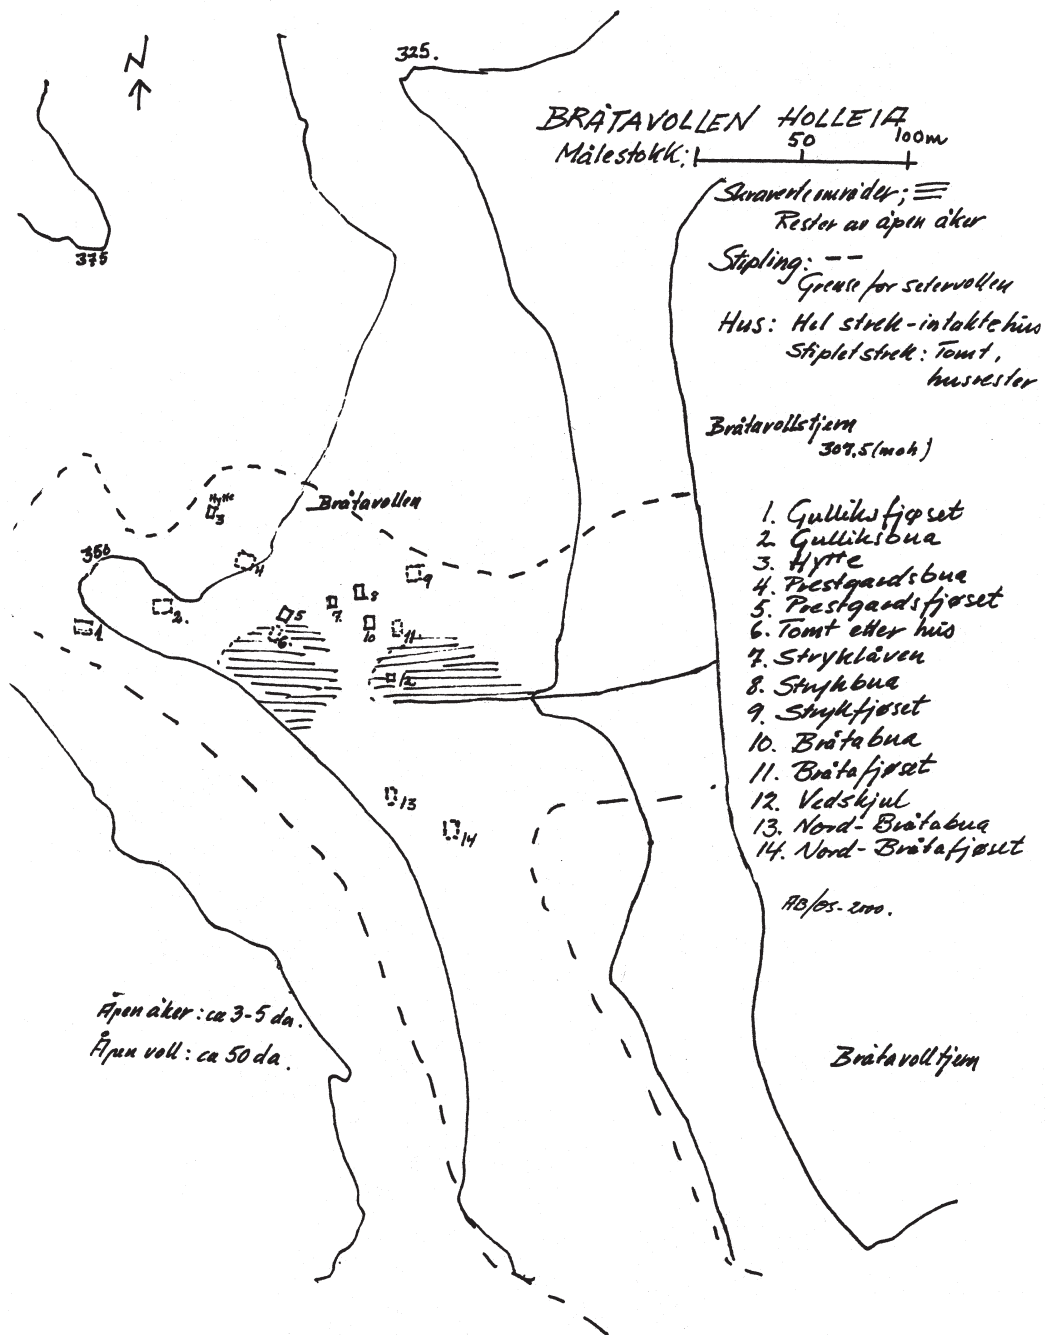 N
325.
BRÅTAVOLLEN HOLLEIA
50 100m
Målestokk:
Skraverte områder;
Rester av åpen åker
375
Stipling: --
Grense for setervollen
Hus: Hel strek - intakte hus
Stiplet strek: Tomt,
husrester
Bråtavollstjern
307,5 (moh)
Bråtavollen
Hytte
3
350
4
9
8
7.
2.
5
1
10
11
6.
12
13
14
1. Gulliksfjøset
2 Gulliksbua
3. Hytte
4. Prestgardsbua
5. Prestgardsfjøset
6. Tomt etter hus
7. Stryklåven
8. Strykbua
9. Strykfjøset
10. Bråtabua
11. Bråtafjøset
12. Vedskjul
13. Nord-Bråtabua
14. Nord-Bråtafjøset
AB/ØS-2000.
Åpen åker: ca 3-5 da.
Åpen voll: ca 50 da.
Bråtavolltjern